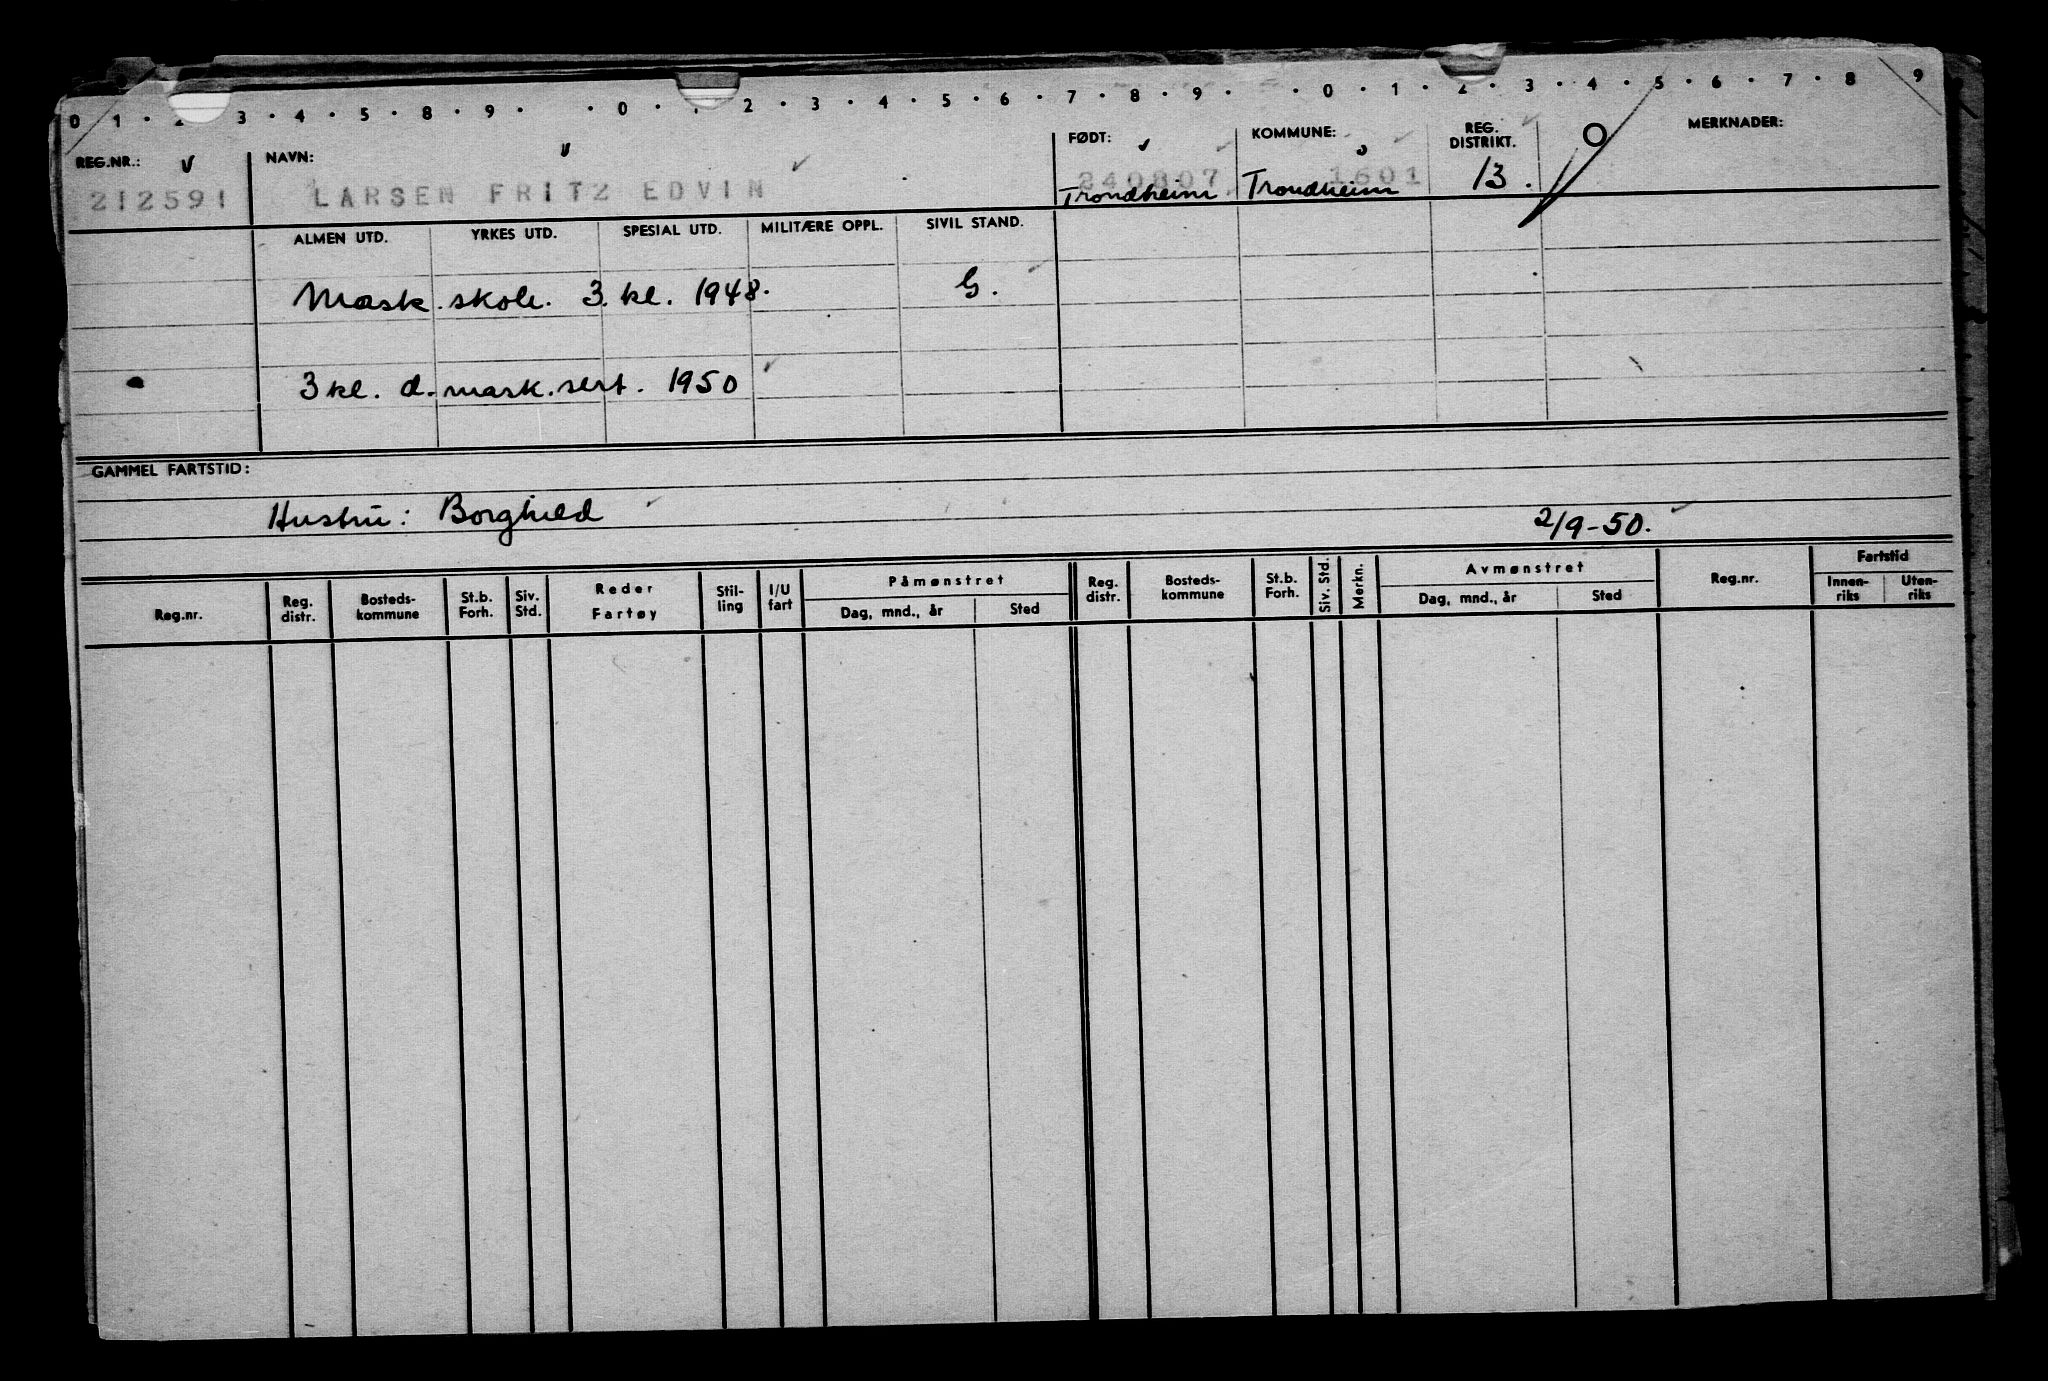 0 1 · 2 3 · 4 · 5 · 8 · 9 · · 0 · 1 2 · 3 · 4 · 5 · 6 · 7 · 8 · 9 · · 0 · 1 · 2 · 3 · 4 · 5 · 6 · 7 · 8 9
REG.NR.: NAVN: FØDT: KOMMUNE: REG. DISTRIKT. MERKNADER:
212591 LARSEN FRITZ EDVIN 240807 1601 13.
Trondheim Trondheim
ALMEN UTD. YRKES UTD. SPESIAL UTD. MILITÆRE OPPL. SIVIL STAND.
Mask. skole. 3. kl. 1948. G.
3 kl. d. mask. sert. 1950
GAMMEL FARTSTID:
Hustru: Borghild 2/9-50.
Reg.nr. Reg. distr. Bosteds-kommune St.b. Forh. Siv. Std. Reder Fartøy Stil-ling I/U fart Påmønstret Reg. distr. Bosteds-kommune St.b. Forh. Siv. Std. Merkn. Avmønstret Reg.nr. Fartstid
Dag, mnd., år Sted Dag, mnd., år Sted Innen-riks Uten-riks